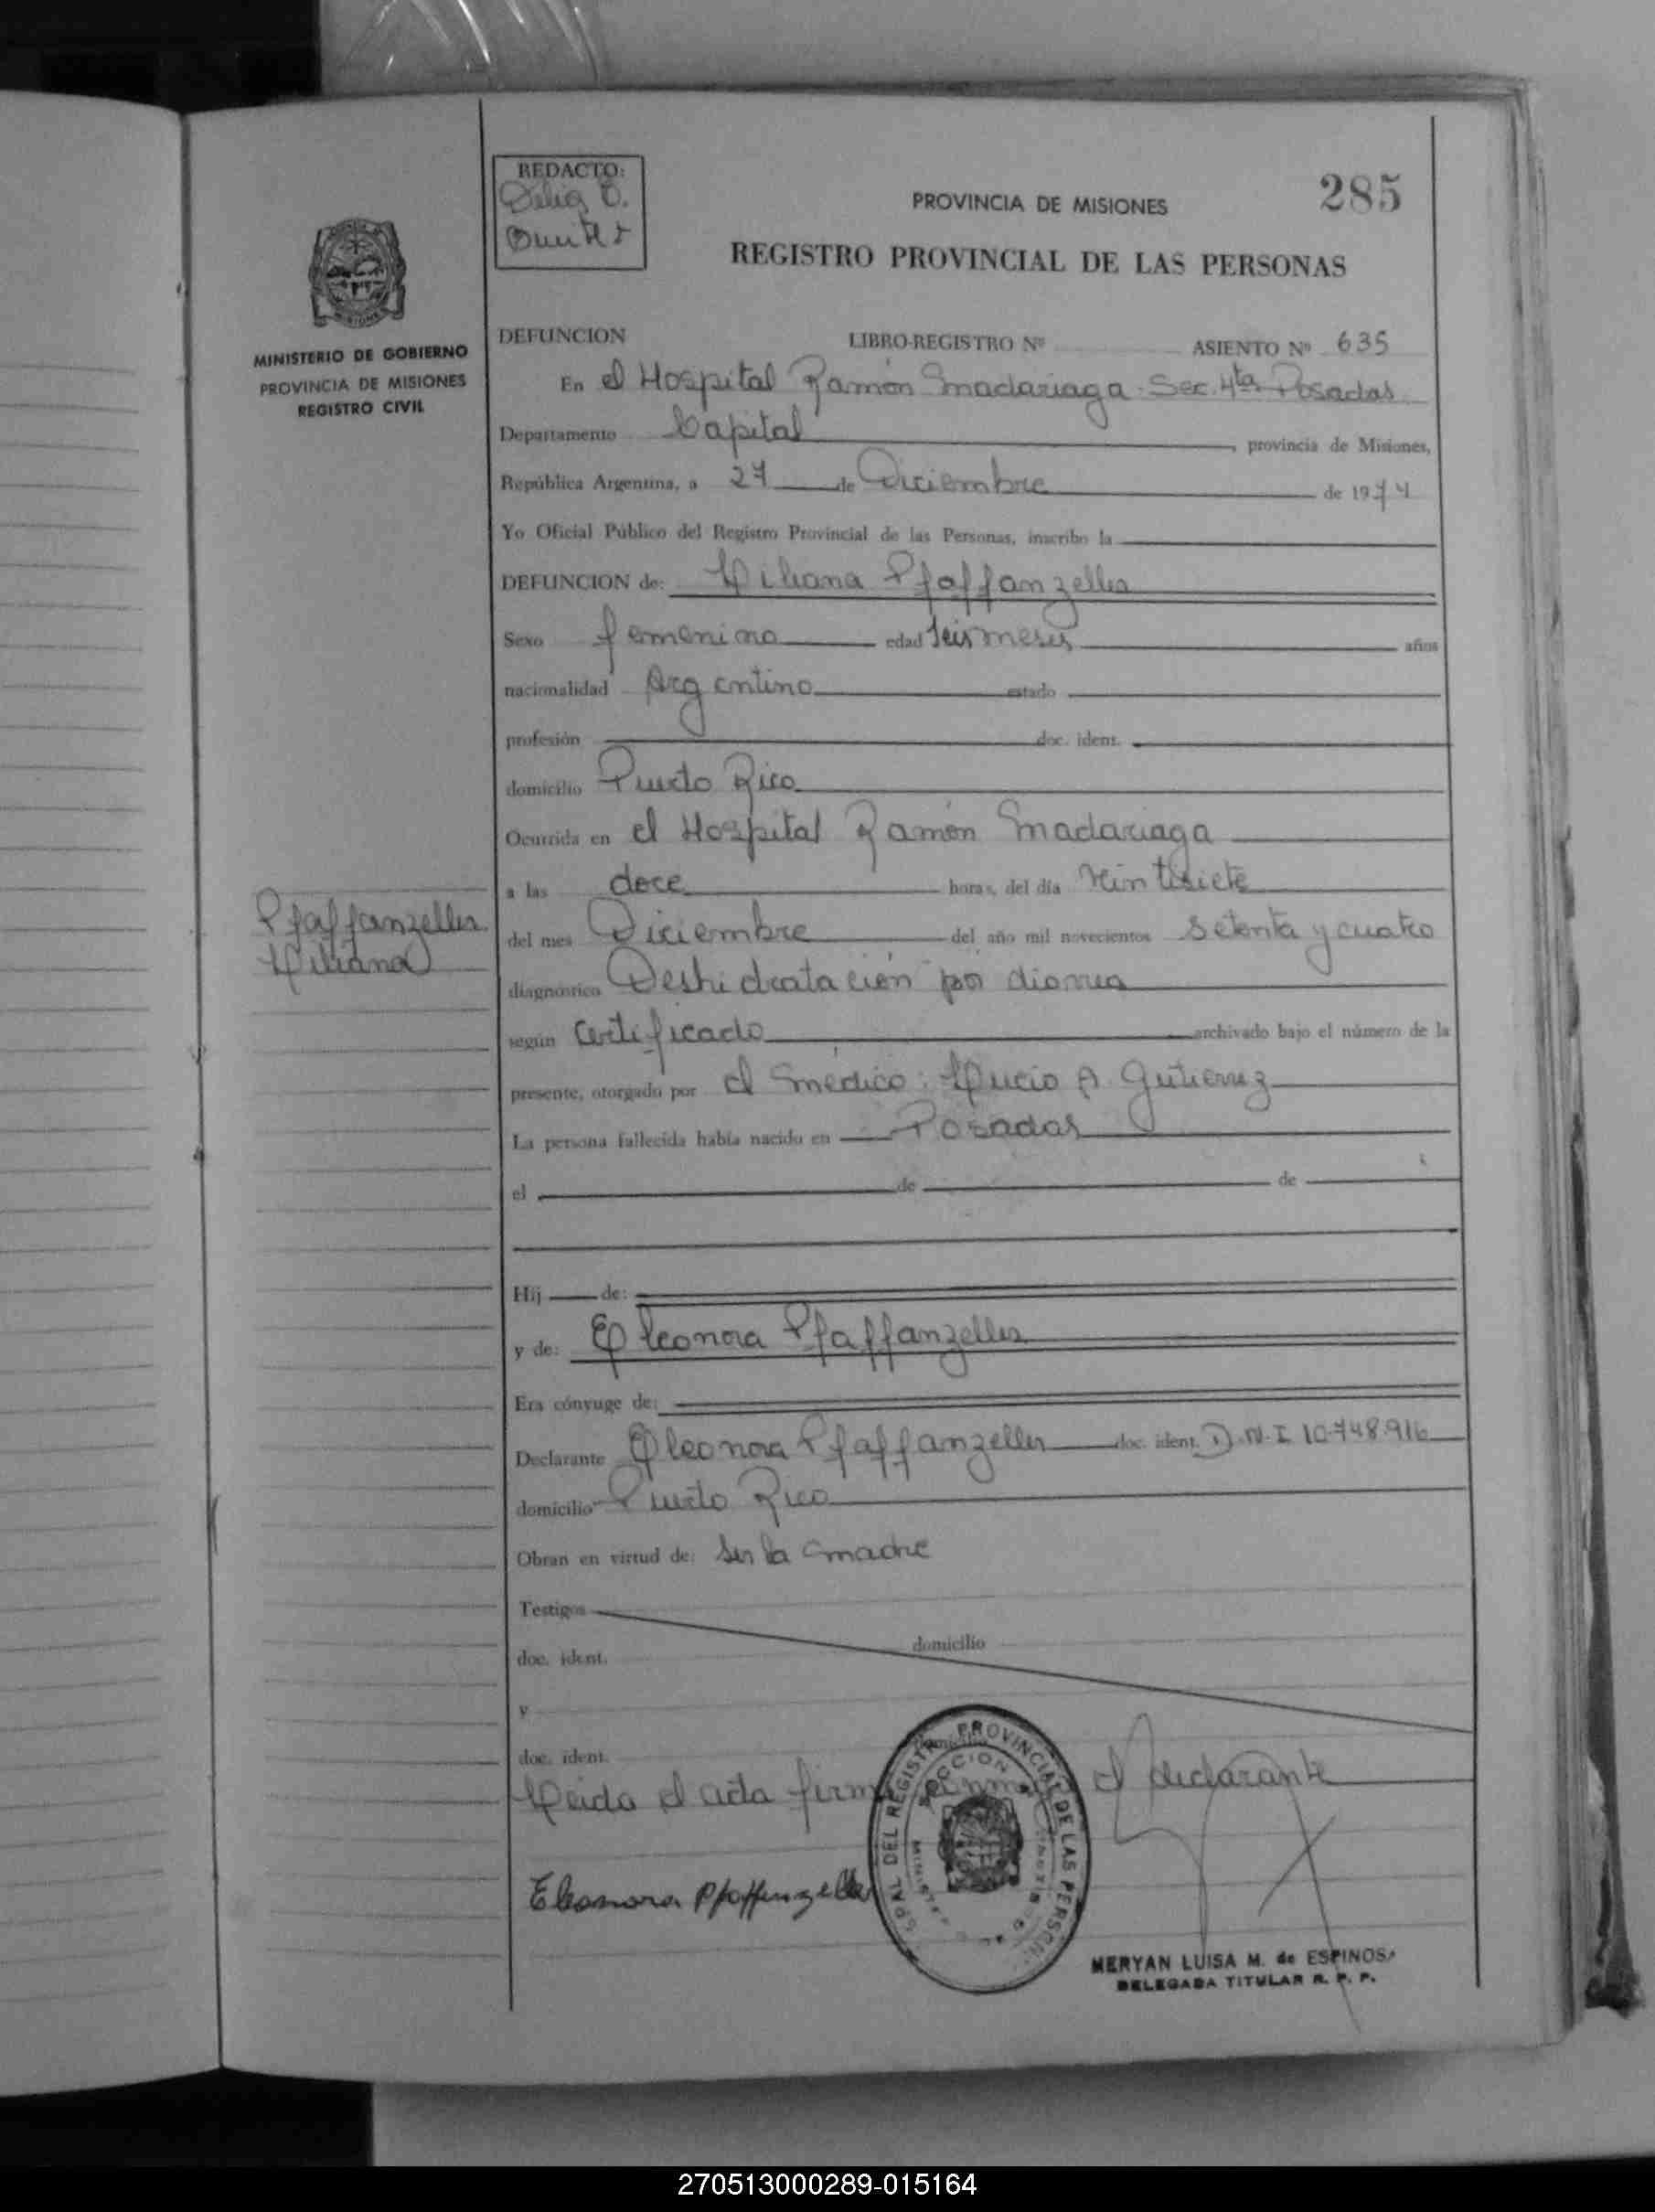 REDACTO:
Delia O.
285
PROVINCIA DE MISIONES
REGISTRO PROVINCIAL DE LAS PERSONAS
MINISTERIO DE GOBIERNO
PROVINCIA DE MISIONES
REGISTRO CIVIL
DEFUNCION LIBRO-REGISTRO Nº ASIENTO Nº 635
En el Hospital Ramón Madariaga - Sec. 4ta Posadas
Departamento Capital, provincia de Misiones,
República Argentina, a 27 de Diciembre de 1974
Yo Oficial Público del Registro Provincial de las Personas, inscribo la
DEFUNCION de: Liliana Pfaffanzeller
Sexo femenino edad seis meses años
nacionalidad Argentina estado
profesión doc. ident.
domicilio Puerto Rico
Ocurrida en el Hospital Ramón Madariaga
a las doce horas, del día veintisiete
del mes Diciembre del año mil novecientos setenta y cuatro
Pfaffanzeller
Liliana
diagnóstico Deshidratación por diarrea
según Certificado archivado bajo el número de la
presente, otorgado por el médico: Lucio A. Gutierrez
La persona fallecida había nacido en Posadas
el de de
Hij de:
y de: Eleonora Pfaffanzeller
Era cónyuge de:
Declarante Eleonora Pfaffanzeller doc. ident. D.N.I 10.748.916
domicilio Puerto Rico
Obran en virtud de: ser la madre
Testigos
doc. ident. domicilio
y
doc. ident.
Leida el acta firma conmigo el declarante
Eleonora Pfaffenzeller
DEL REGISTRO PROVINCIAL DE LAS PERSON
SECCION
MERYAN LUISA M. de ESPINOSA
DELEGADA TITULAR R. P. P.
270513000289-015164